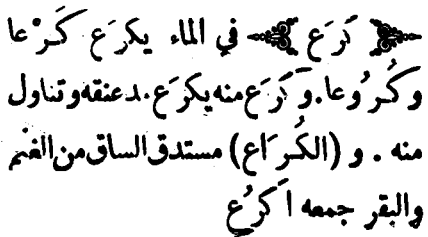 ﴿ كَرَع ﴾ في الماء يكرَع كَرْعا
وكُرُوعا. وكَرَع منه يكرَع. مد عنقه وتناول
منه . و (الكُرَاع) مستدق الساق من الغنم
والبقر جمعه اَكرُع